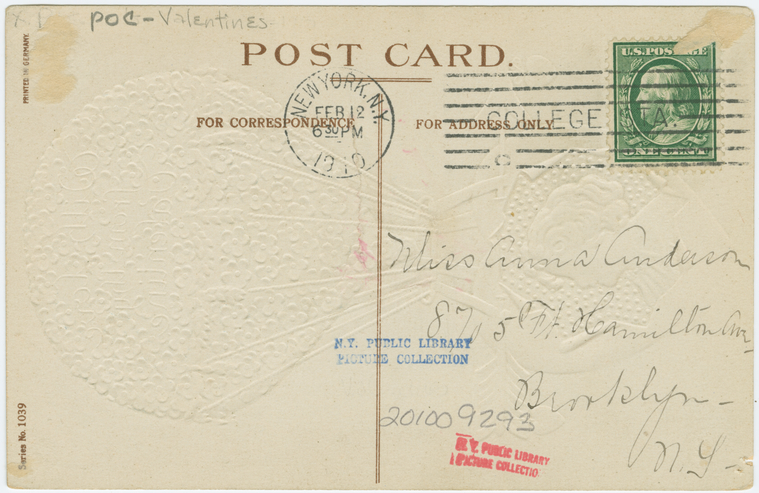 POC - Valentines
PRINTED IN GERMANY.
POST CARD.
U.S. POSTAGE
ONE CENT
NEW YORK, N.Y.
FEB 12
6 30 PM
1910
COLLEGE STA.
C
FOR CORRESPONDENCE
FOR ADDRESS ONLY
Miss Anna Anderson
8715 Ft. Hamilton Ave
Brooklyn -
N.Y -
N.Y. PUBLIC LIBRARY
PICTURE COLLECTION
201009293
N.Y. PUBLIC LIBRARY
PICTURE COLLECTIO
Series No. 1039